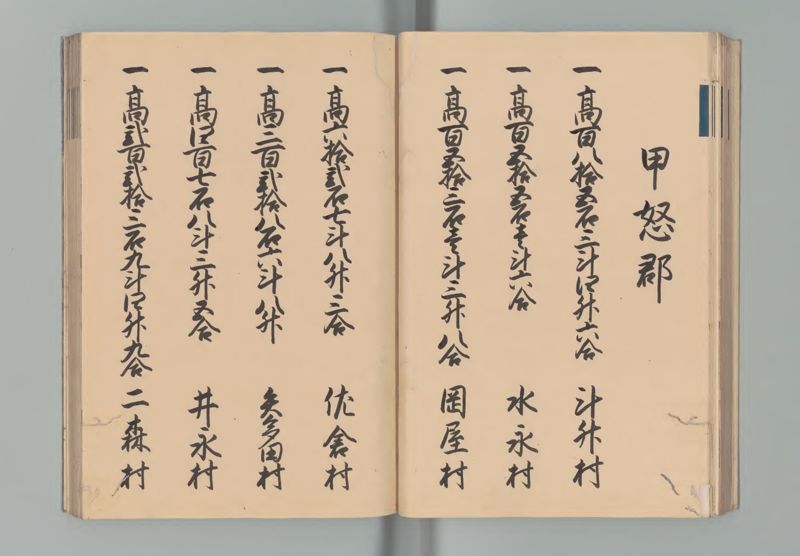 甲怒郡
一 高百八拾五石三斗四升六合 斗升村
一 高百五拾五石壱斗六合 水永村
一 高百五拾三石壱斗三升八合 岡屋村
一 高六拾弐石七斗八升三合 佐倉村
一 高三百弐拾八石六斗八升 矢多田村
一 高四百七石八斗三升五合 井永村
一 高弐百弐拾三石九斗四升九合 二森村